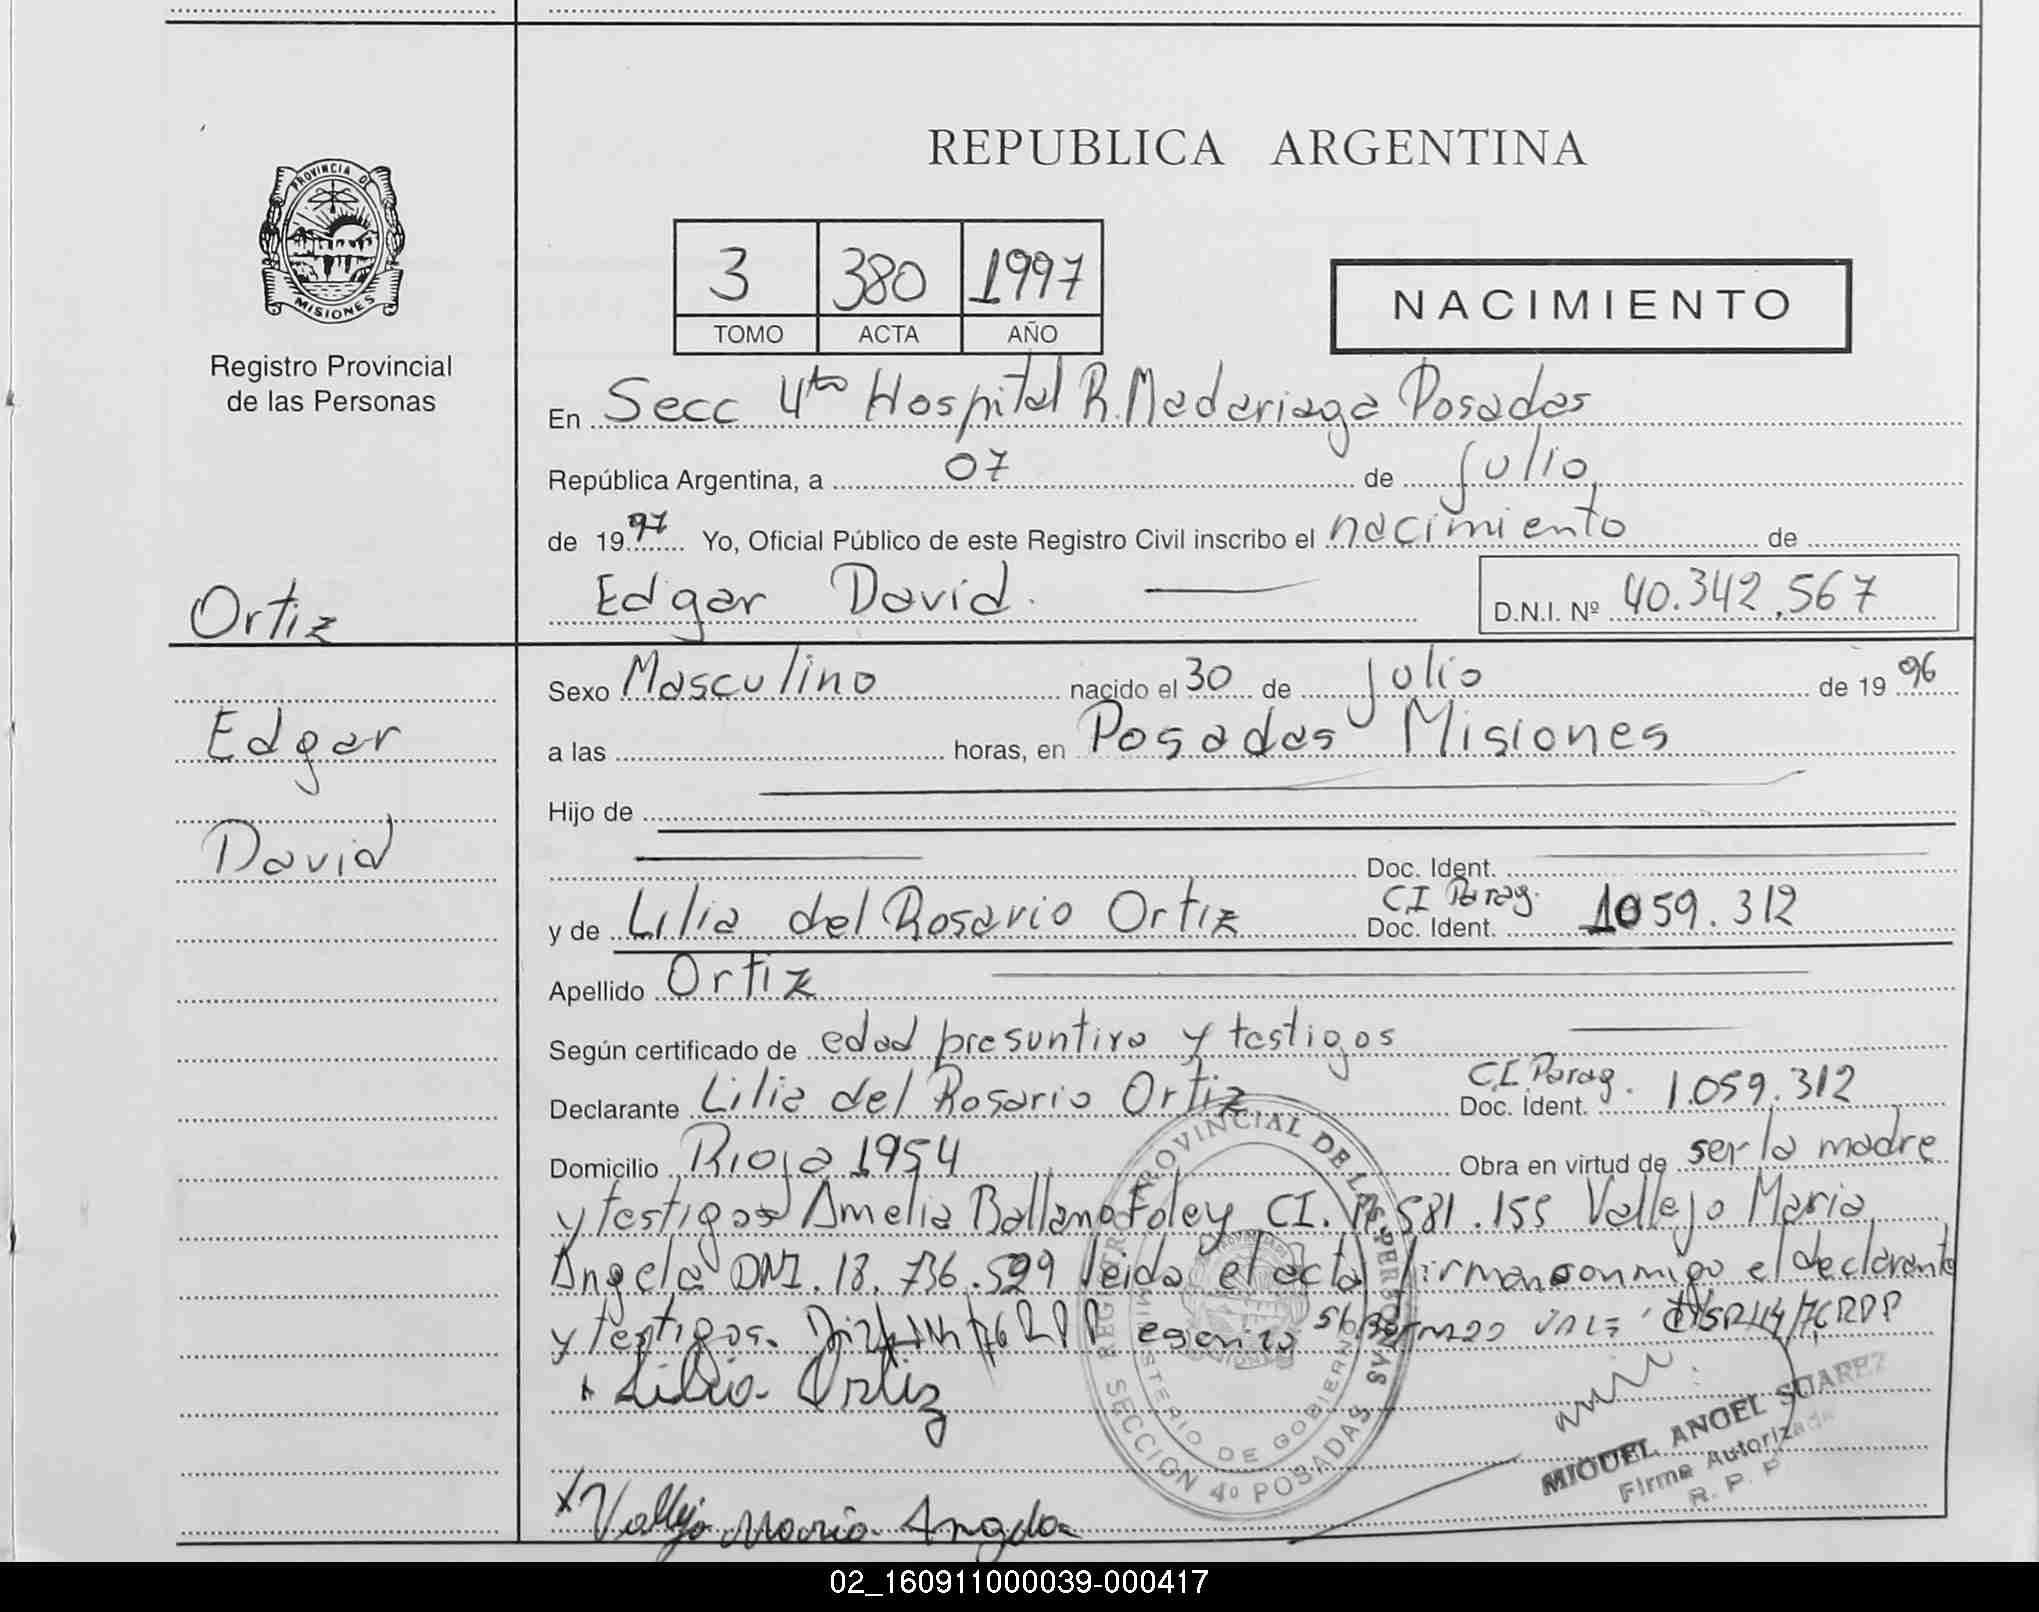 REPUBLICA ARGENTINA
PROVINCIA DE
MISIONES
Registro Provincial
de las Personas
3 380 1997
TOMO ACTA AÑO
NACIMIENTO
En Secc 4ta Hospital R. Madariaga Posadas
República Argentina, a 07 de julio
de 1997 Yo, Oficial Público de este Registro Civil inscribo el nacimiento de
Edgar David. D.N.I. Nº 40.342.567
Ortiz
Edgar
David
Sexo Masculino nacido el 30 de julio de 1996
a las horas, en Posadas Misiones
Hijo de
Doc. Ident.
y de Lilia del Rosario Ortiz Doc. Ident. CI Parag. 1059.312
Apellido Ortiz
Según certificado de edad presuntiva y testigos
Declarante Lilia del Rosario Ortiz Doc. Ident. C.I. Parag. 1.059.312
Domicilio Rioja 1954 Obra en virtud de ser la madre
y testigos Amelia Foley CI. 581.155 Vallejo Maria
Angela DNI. 18.736.599 leida el acta firman conmigo el declarante
y testigos.
Lilia Ortiz
Vallejo Maria Angela
REGISTRO PROVINCIAL DE LAS PERSONAS
MINISTERIO DE GOBIERNO
SECCION 4º POSADAS
MIGUEL ANGEL SUAREZ
Firma Autorizada
R. P. P.
02_160911000039-000417